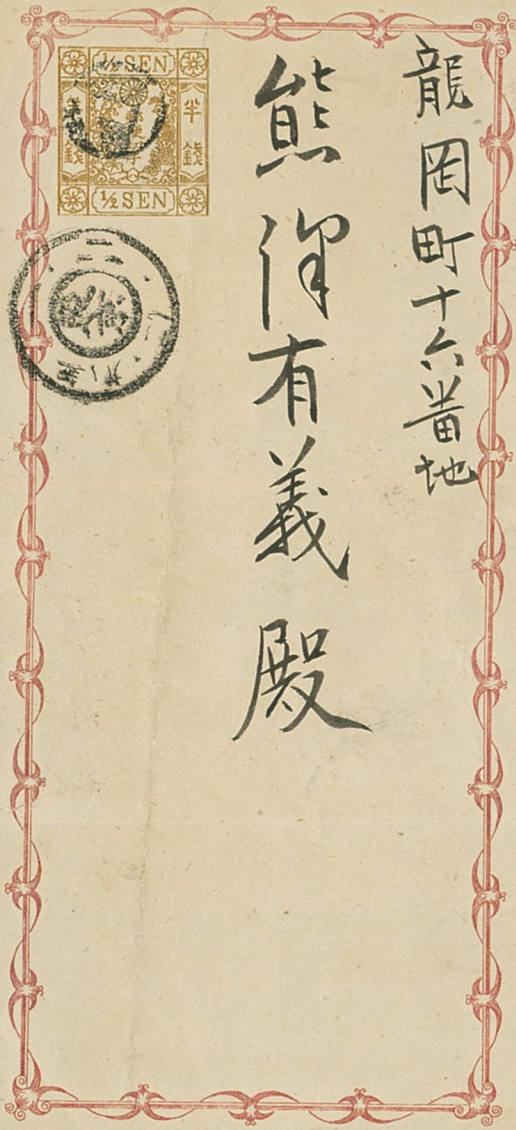 龍岡町十六番地
熊澤有義殿
½ SEN
半
錢
½ SEN